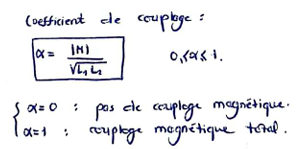 Coefficient de couplage :
α = |M| / √L₁L₂    0 ≤ α ≤ 1.
α = 0 : pas de couplage magnétique.
α = 1 : couplage magnétique total.